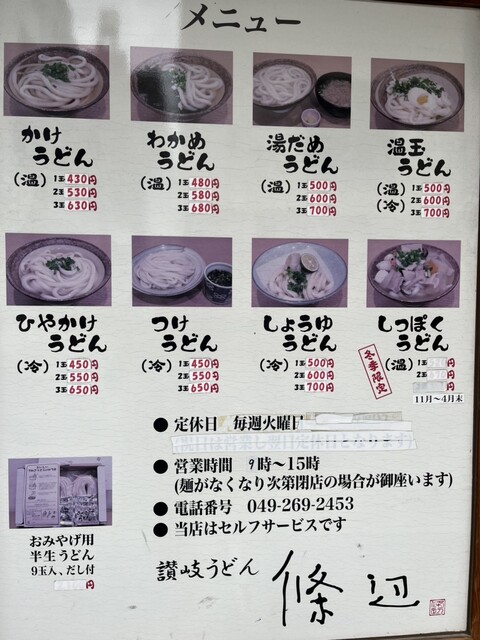 メニュー
かけ
うどん
(温) 1玉 430円
2玉 530円
3玉 630円
わかめ
うどん
(温) 1玉 480円
2玉 580円
3玉 680円
湯だめ
うどん
(温) 1玉 500円
2玉 600円
3玉 700円
温玉
うどん
(温) 1玉 500円
(冷) 2玉 600円
3玉 700円
ひやかけ
うどん
(冷) 1玉 450円
2玉 550円
3玉 650円
つけ
うどん
(冷) 1玉 450円
2玉 550円
3玉 650円
しょうゆ
うどん
(冷) 1玉 500円
2玉 600円
3玉 700円
しっぽく
うどん
冬季限定
(温) 1玉 円
2玉 円
円
11月〜4月末
● 定休日 毎週火曜日
祝日は営業し翌日定休日となります
● 営業時間 9時〜15時
(麺がなくなり次第閉店の場合が御座います)
● 電話番号 049-269-2453
● 当店はセルフサービスです
おみやげ用
半生うどん
9玉入、だし付
円
讃岐うどん 條辺